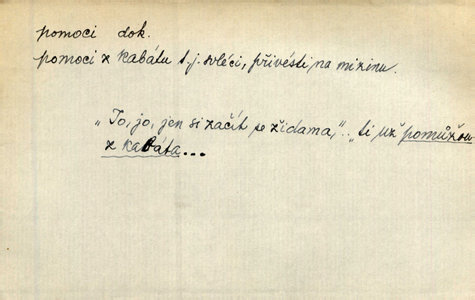 pomoci dok.
pomoci z kabátu t.j. svléci, přivésti na mizinu.
„Jo, jo, jen si začít se židama,".. „ti už pomůžou
z kabáta...